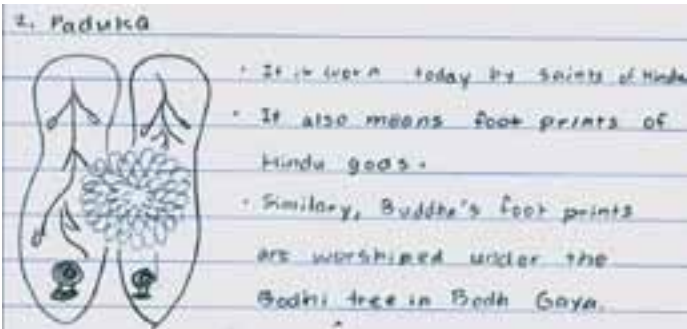 1. Paduka
· It is worn today by saints of Hindu
· It also means foot prints of
Hindu gods.
· Similary, Buddha's foot prints
are worshiped under the
Bodhi tree in Bodh Gaya.